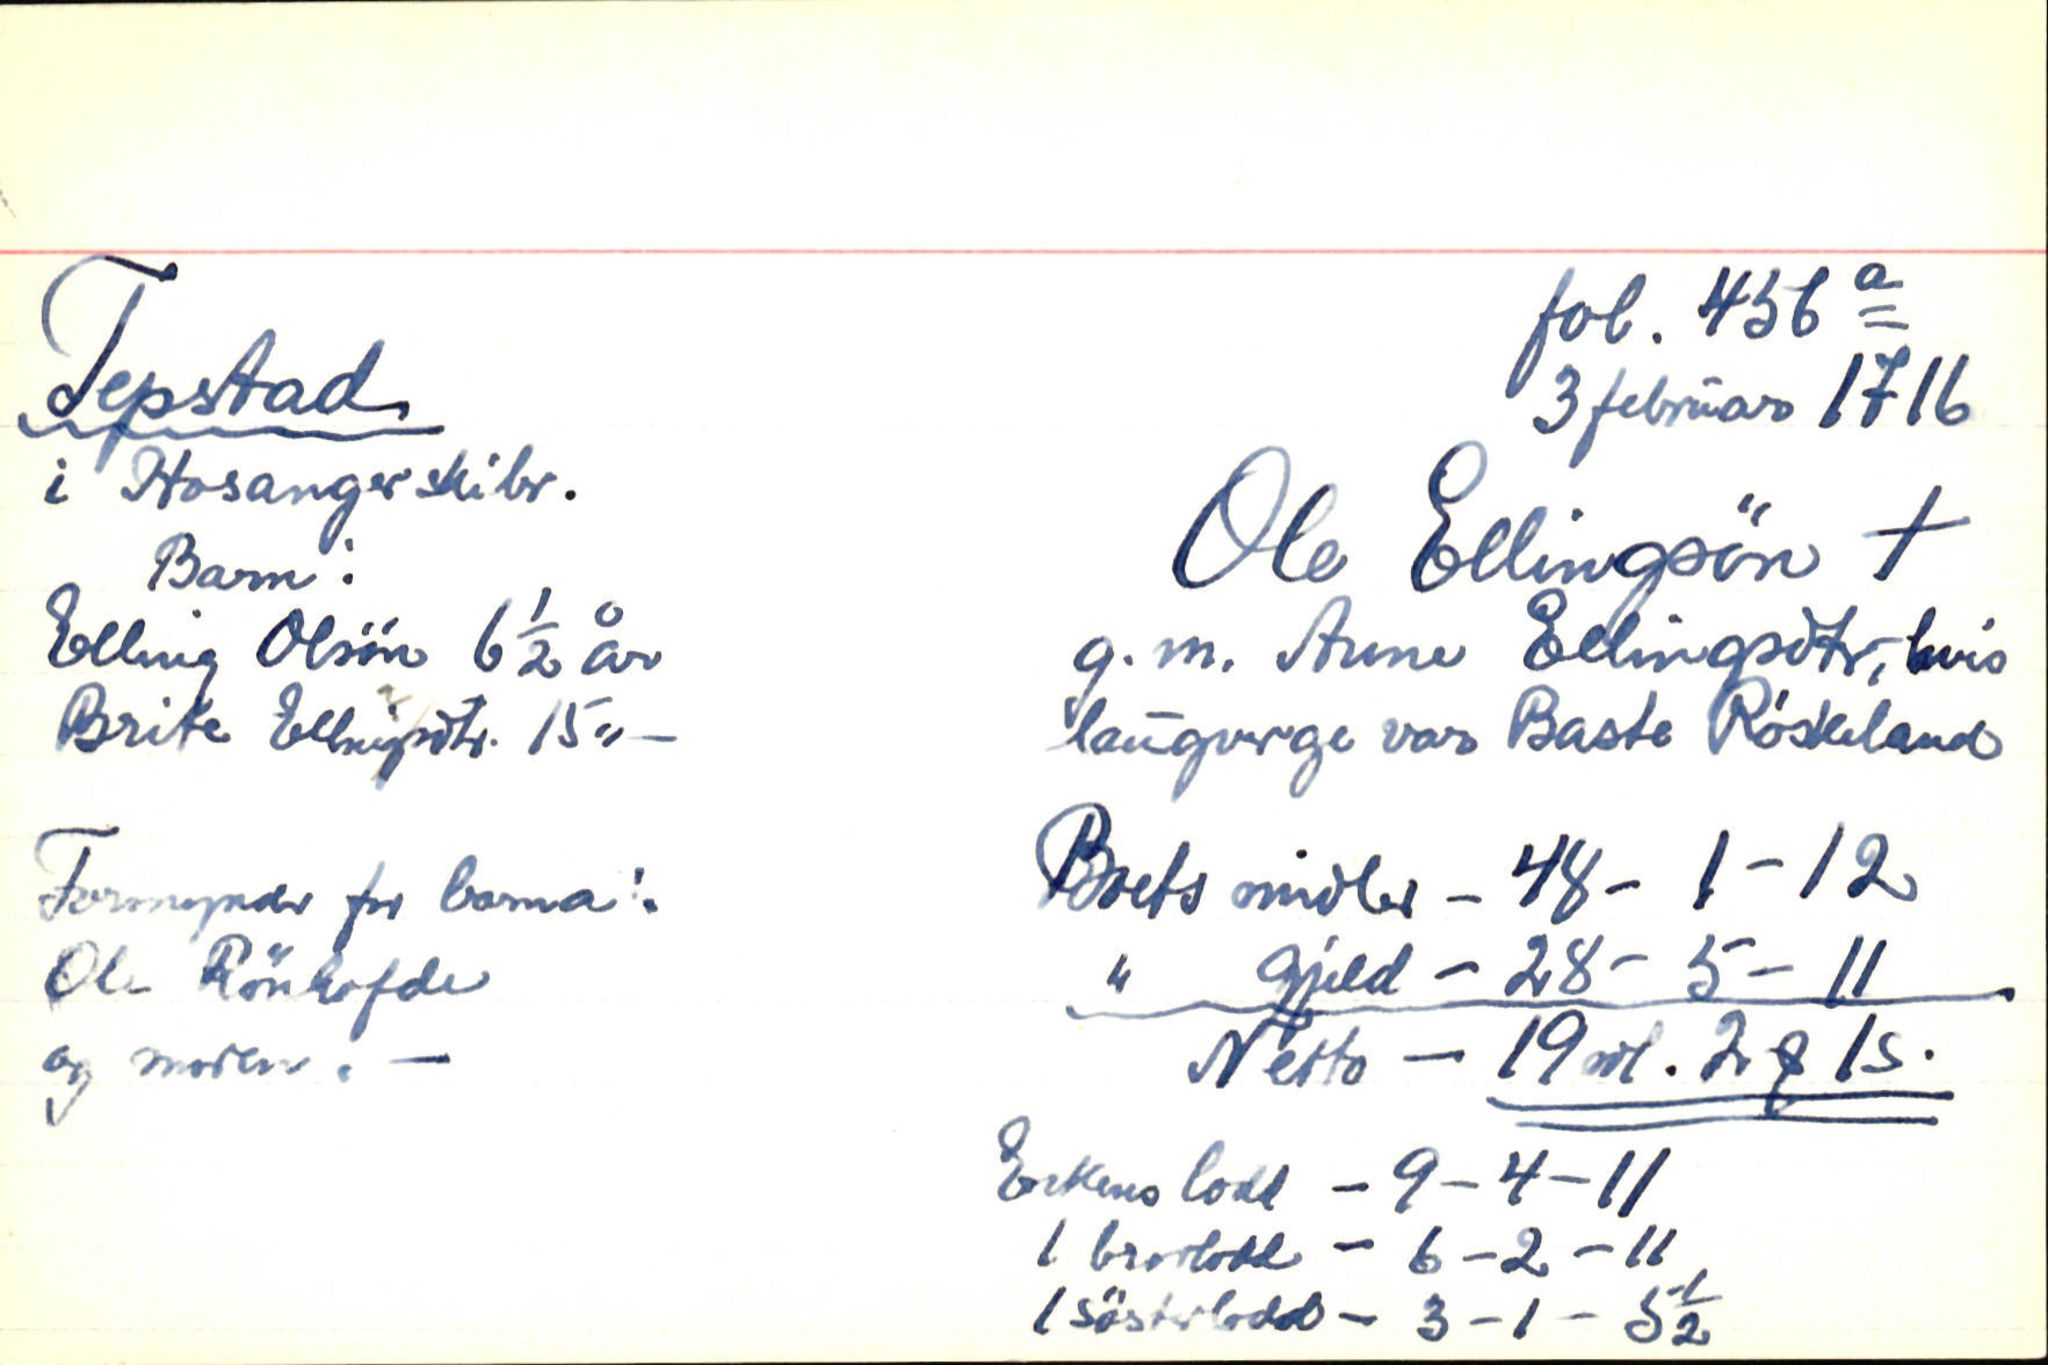 Tepstad
i Hosanger skibr.
Barn:
Elling Olsön 6 1/2 år
Brite Ellingsdtr. 15 " —
Formynder for barna:
Ole Rönhofde
og moren. —
fol. 456 a
3 februar 1716
Ole Ellingsön †
g. m. Anne Ellingsdtr, hvis
laugverge var Baste Röskeland
Boets midler – 48 – 1 – 12
" gjeld – 28 – 5 – 11
Netto — 19 rdl. 2 ꝑ 1 s.
Enkens lodd – 9 – 4 – 11
1 brorlodd – 6 – 2 – 11
1 sösterlodd – 3 – 1 – 5 1/2